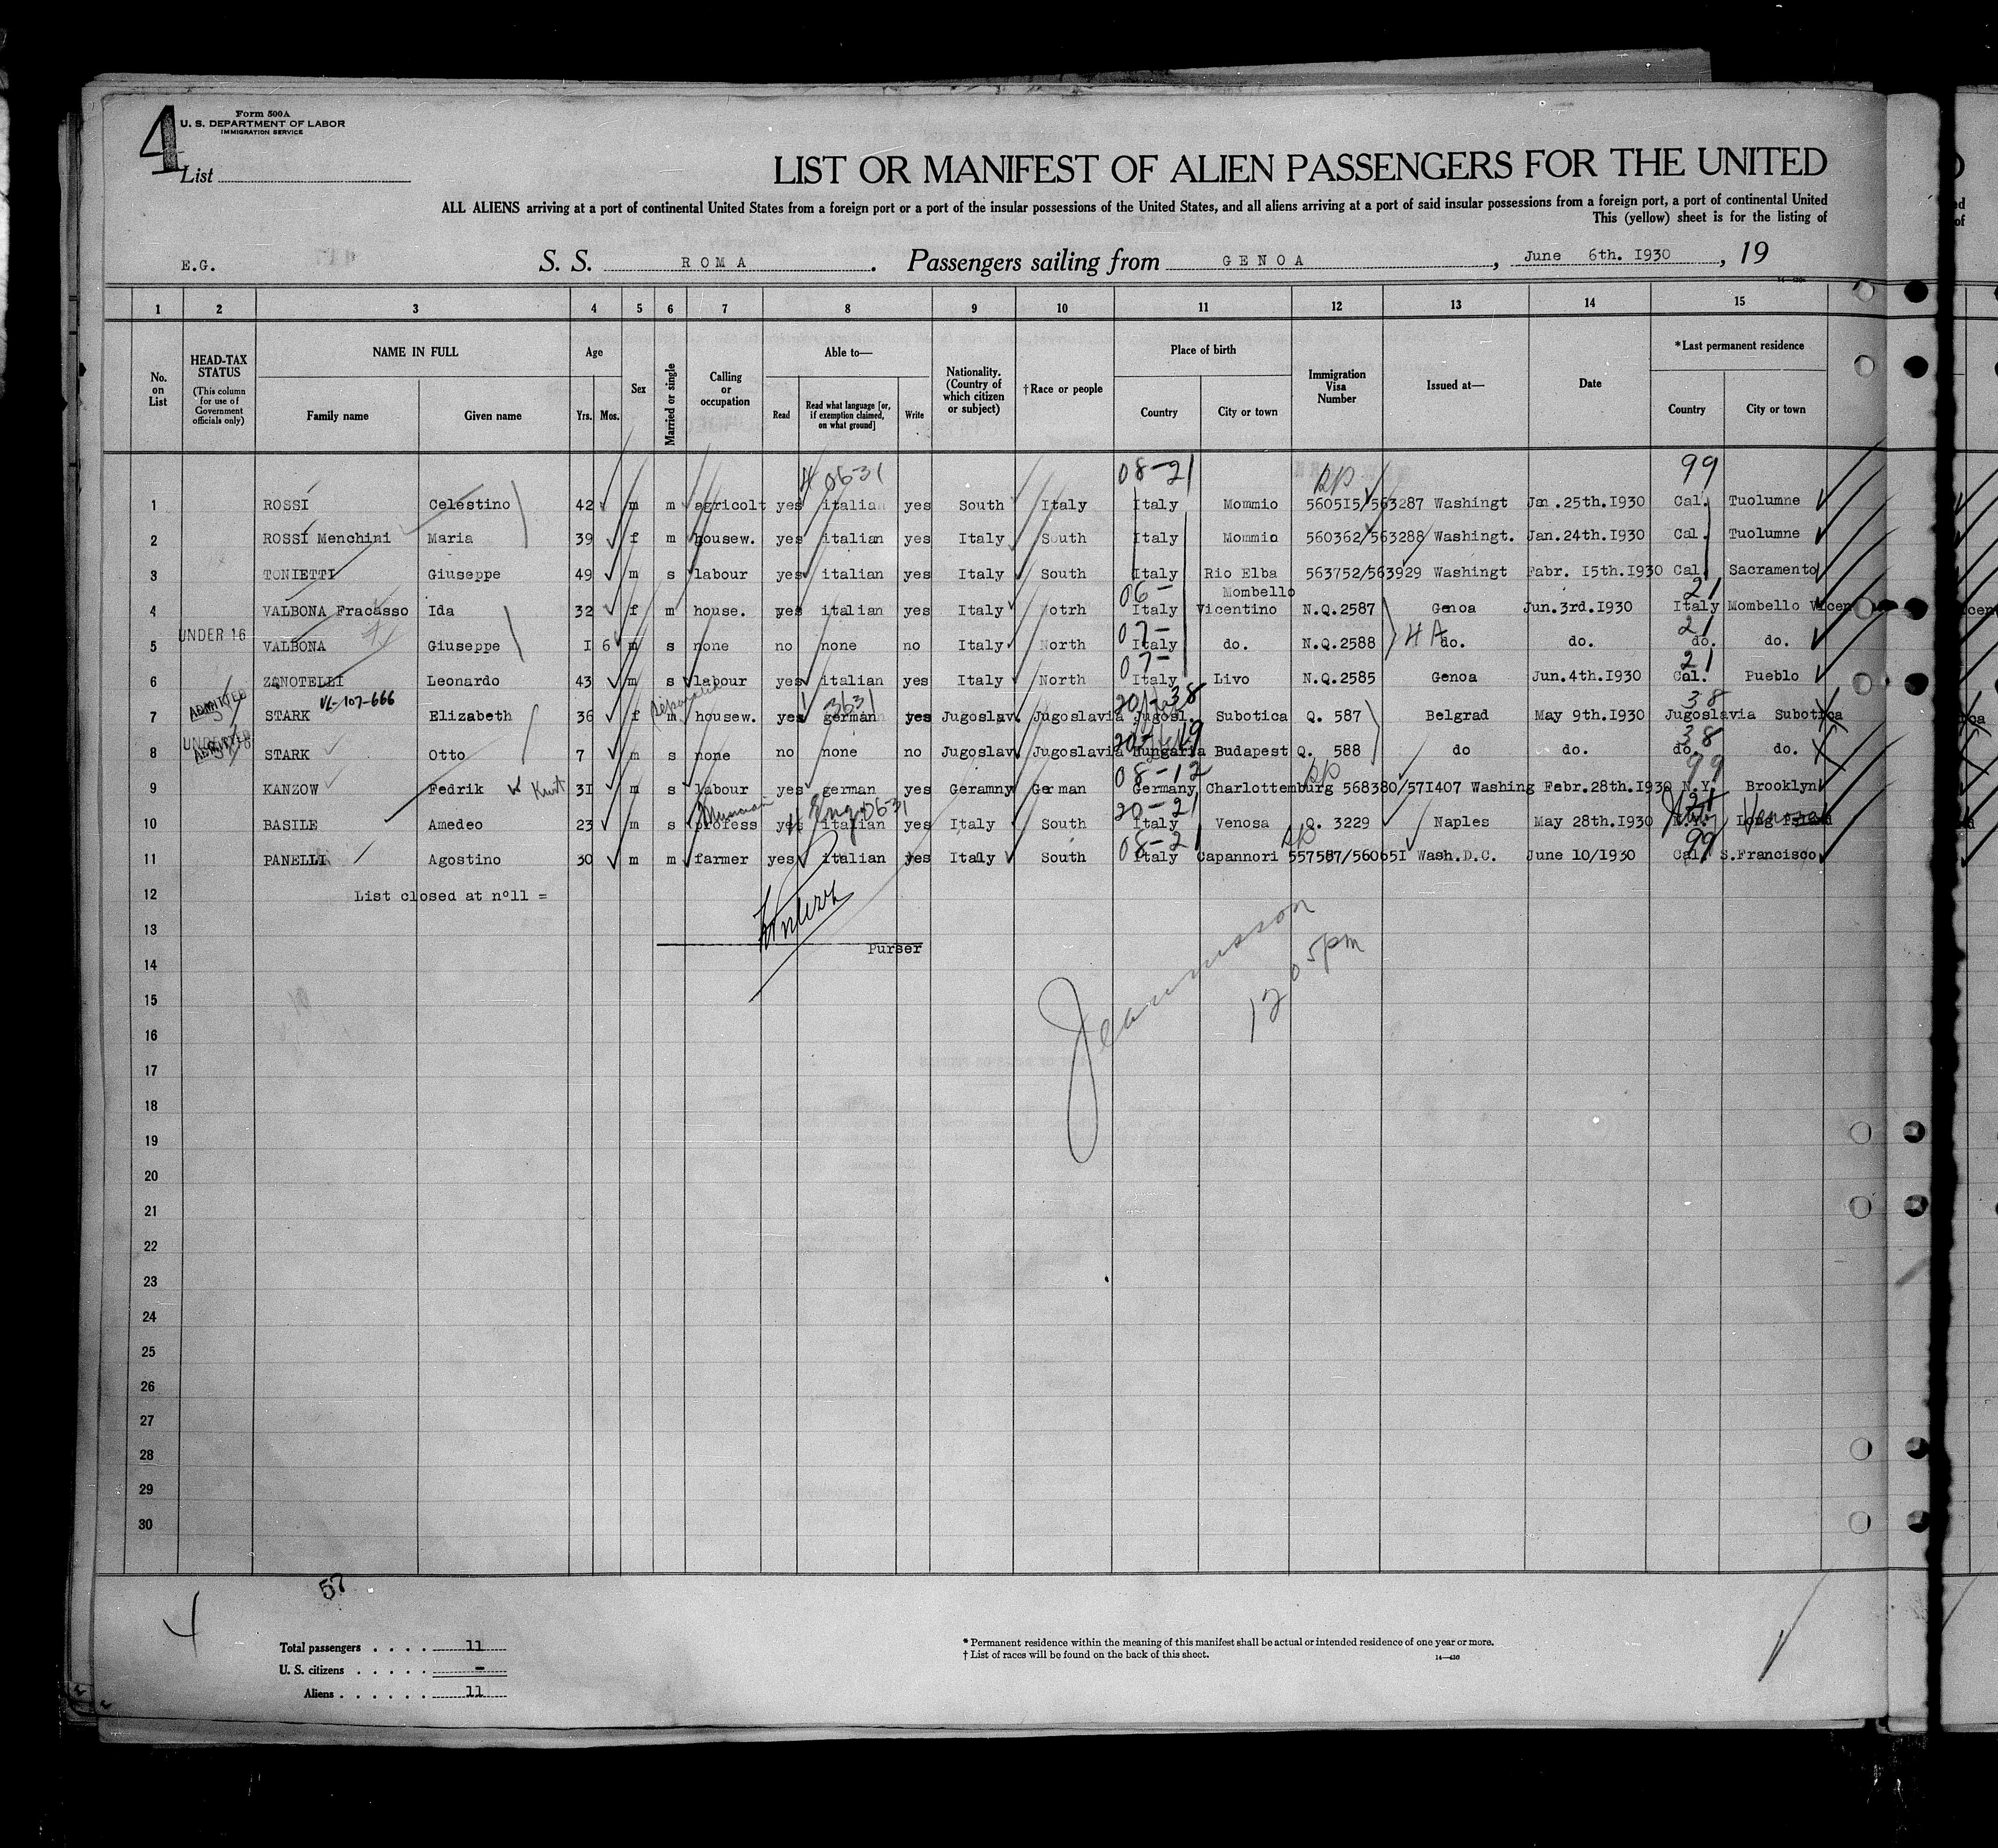 4
Form 500A
U. S. DEPARTMENT OF LABOR
IMMIGRATION SERVICE
List
LIST OR MANIFEST OF ALIEN PASSENGERS FOR THE UNITED
ALL ALIENS arriving at a port of continental United States from a foreign port or a port of the insular possessions of the United States, and all aliens arriving at a port of said insular possessions from a foreign port, a port of continental United
This (yellow) sheet is for the listing of
E.G. S. S. ROMA. Passengers sailing from GENOA, June 6th. I930, 19
1 2 3 4 5 6 7 8 9 10 11 12 13 14 15
No. on List
HEAD-TAX STATUS
(This column for use of Government officials only)
NAME IN FULL
Family name Given name
Age
Yrs. Mos.
Sex
Married or single
Calling or occupation
Able to—
Read
Read what language [or, if exemption claimed, on what ground]
Write
Nationality. (Country of which citizen or subject)
†Race or people
Place of birth
Country City or town
Immigration Visa Number
Issued at—
Date
*Last permanent residence
Country City or town
0631 08-21 99
1 ROSSI Celestino 42 m m agricolt yes italian yes South Italy Italy Mommio 5605I5/563287 Washingt Jan.25th.I930 Cal. Tuolumne
2 ROSSI Menchini Maria 39 f m housew. yes italian yes Italy South Italy Mommio 560362/563288 Washingt. Jan.24th.I930 Cal. Tuolumne
3 TONIETTI Giuseppe 49 m s labour yes italian yes Italy South Italy Rio Elba 563752/563929 Washingt Fabr. I5th.I930 Cal. Sacramento
06- Mombello 21
4 VALBONA Fracasso Ida 32 f m house. yes italian yes Italy Notrh Italy Vicentino N.Q.2587 Genoa Jun.3rd.I930 Italy Mombello Vicen
UNDER 16 07- 4 A 21
5 VALBONA Giuseppe I 6 m s none no none no Italy North Italy do. N.Q.2588 do. do. do. do.
07- 21
6 ZANOTELLI Leonardo 43 m s labour yes italian yes Italy North Italy Livo N.Q.2585 Genoa Jun.4th.I930 Cal. Pueblo
ADMITTED VL-107-666 separated 3631 38
7 STARK Elizabeth 36 f m housew. yes german yes Jugoslav. Jugoslavia Jugosl. Subotica Q. 587 Belgrad May 9th.I930 Jugoslavia Subotica
ADMITTED 38
8 STARK Otto 7 m s none no none no Jugoslav. Jugoslavia Hungaria Budapest Q. 588 do do. do. do.
08-12 99
9 KANZOW Fedrik Kurt 3I m s labour yes german yes Geramny German Germany Charlottemburg 568380/57I407 Washing Febr.28th.I930 N.Y. Brooklyn
Musician Eng 0631 20-21 21
10 BASILE Amedeo 23 m s profess yes italian yes Italy South Italy Venosa Q. 3229 Naples May 28th.I930 N.Y. Long Island Venosa
08-21 99
11 PANELLI Agostino 30 m m farmer yes italian yes Italy South Italy Capannori 557587/56065I Wash.D.C. June 10/1930 Cal. S.Francisco
12 List closed at n°11 =
13
Purser
14
15
12 05pm
16
17
18
19
20
21
22
23
24
25
26
27
28
29
30
57
Total passengers 11
U. S. citizens -
Aliens 11
* Permanent residence within the meaning of this manifest shall be actual or intended residence of one year or more.
† List of races will be found on the back of this sheet.
14—430